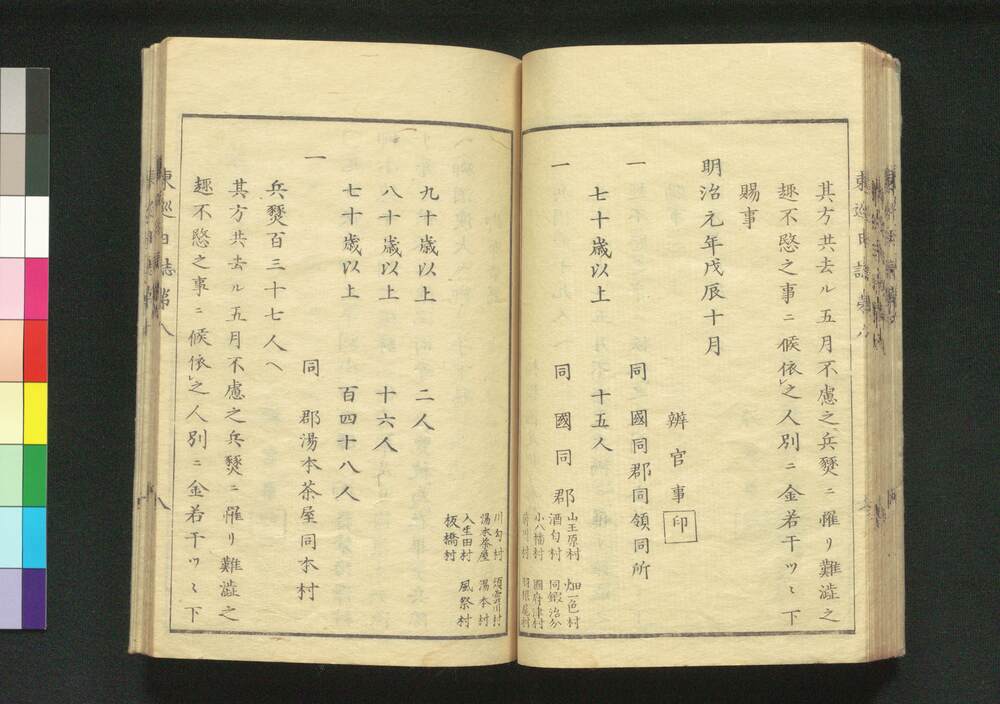 其方共去ル五月不慮之兵燹ニ罹リ難澁之
趣不愍之事ニ候依之人別ニ金若干ツヽ下
賜事
明治元年戊辰十月
辨官事印
一 同國同郡同領同所
七十歳以上 十五人
一 同國同郡
山王原村 畑一色村
酒匂村 同鍛治分
小八幡村 國府津村
前川村 羽根尾村
川匂村 須雲川村
湯本茶屋 湯本村
入生田村 風祭村
板橋村
九十歳以上 二人
八十歳以上 十六人
七十歳以上 百四十八人
一 同郡湯本茶屋同本村
兵燹百三十七人ヘ
其方共去ル五月不慮之兵燹ニ罹リ難澁之
趣不愍之事ニ候依之人別ニ金若干ツヽ下
東巡日誌第八
八